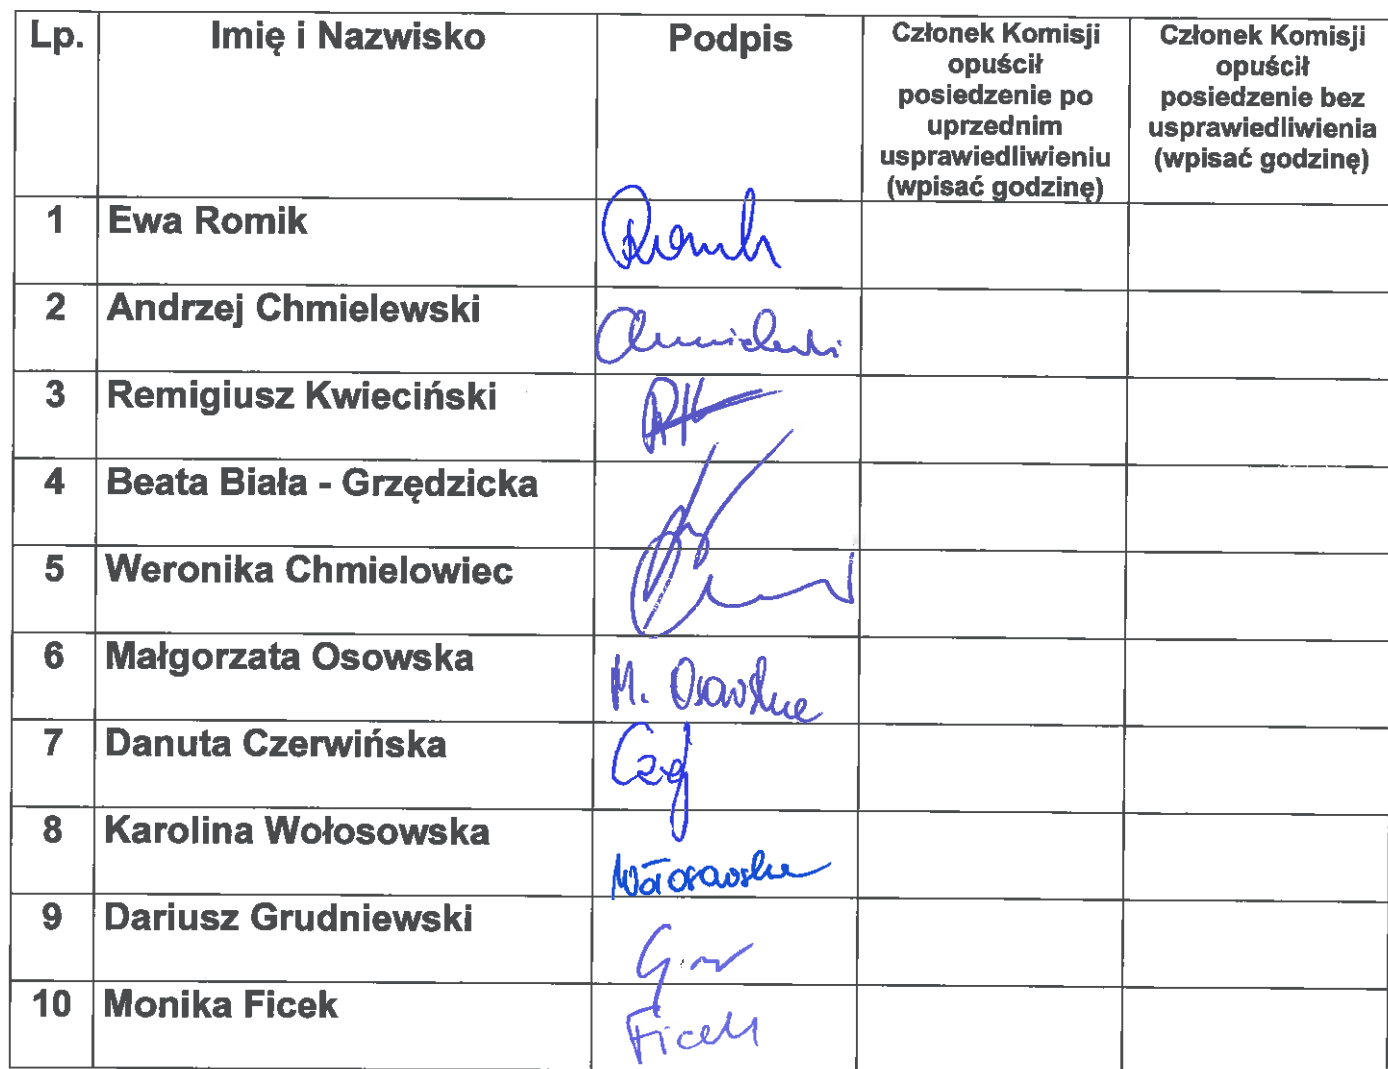 Lp.
Imię i Nazwisko
Podpis
Członek Komisji
opuścił
posiedzenie po
uprzednim
usprawiedliwieniu
(wpisać godzinę)
Członek Komisji
opuścił
posiedzenie bez
usprawiedliwienia
(wpisać godzinę)
1 Ewa Romik
2 Andrzej Chmielewski
3 Remigiusz Kwieciński
4 Beata Biała - Grzędzicka
5 Weronika Chmielowiec
6 Małgorzata Osowska M. Osowska
7 Danuta Czerwińska
8 Karolina Wołosowska Wołosowska
9 Dariusz Grudniewski
10 Monika Ficek Ficek